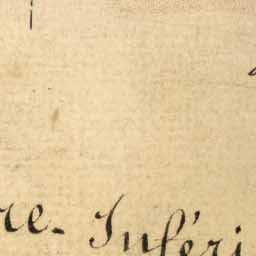 re-Inféri